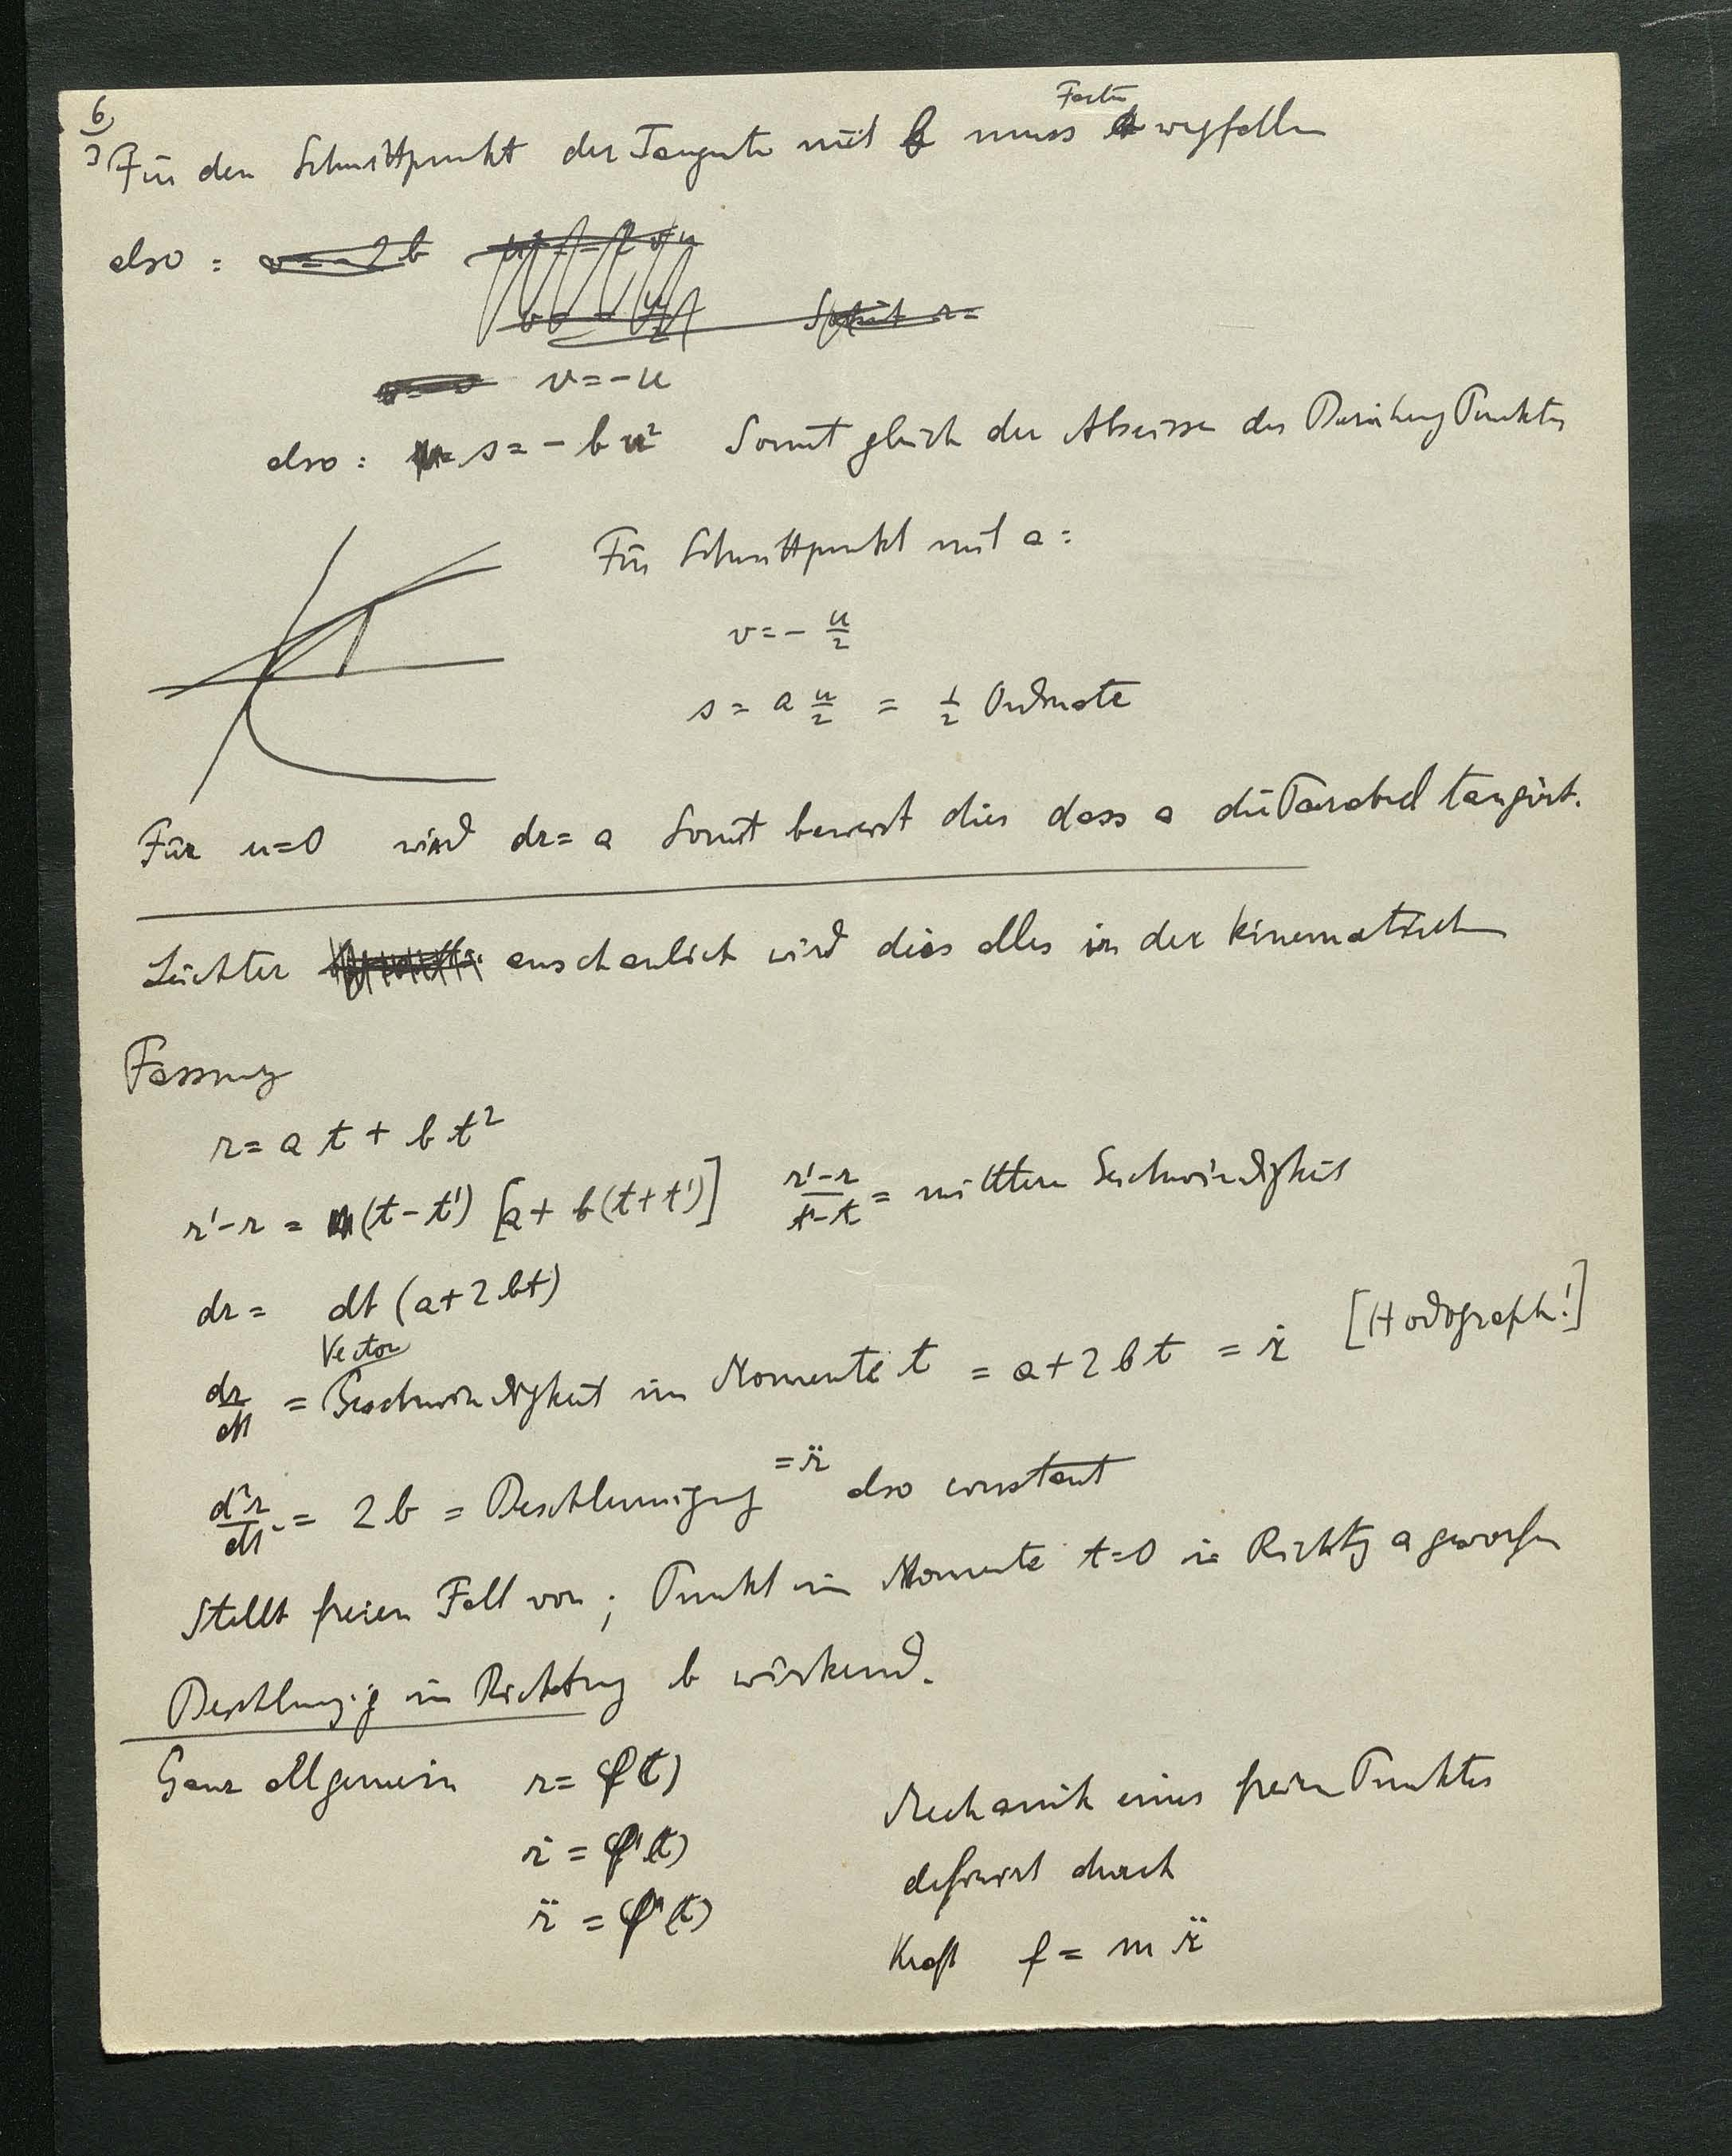 6
Für den Schnittpunkt der Tangente mit b muss Factor a wegfallen
also : v = -2b
Somit r =
v = -u
also : s = - b u² Somit gleich der Abscisse des Berührung Punktes
Für Schnittpunkt mit a :
v = - u/2
s = a u/2 = 1/2 Ordinate
Für u=0 wird dr = a Somit beweist dies dass a die Parabel tangirt.
Leichter anschaulich wird dies alles in der kinematischen
Fassung
r = a t + b t²
r' - r = (t - t') [a + b(t + t')] r'-r/t'-t = mittlere Geschwindigkeit
dr = dt (a + 2 bt)
Vector
dr/dt = Geschwindigkeit im Momente t = a + 2 b t = ṙ [Hodograph!]
d²r/dt² = 2 b = Beschleunigung = r̈ also constant
Stellt freien Fall vor ; Punkt im Momente t=0 in Richtg a geworfen
Beschleunig in Richtung b wirkend.
Ganz allgemein r = φ(t)
ṙ = φ'(t)
r̈ = φ''(t)
Mechanik eines freien Punktes
definirt durch
Kraft f = m r̈